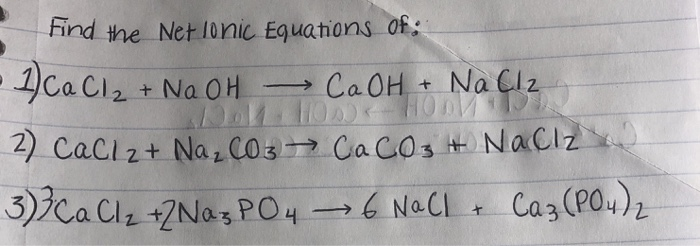 Find the Net Ionic Equations of:
1) CaCl₂ + NaOH → CaOH + NaCl₂
2) CaCl₂ + Na₂CO₃ → CaCO₃ + NaCl₂
3) 3CaCl₂ + 2Na₃PO₄ → 6 NaCl + Ca₃(PO₄)₂